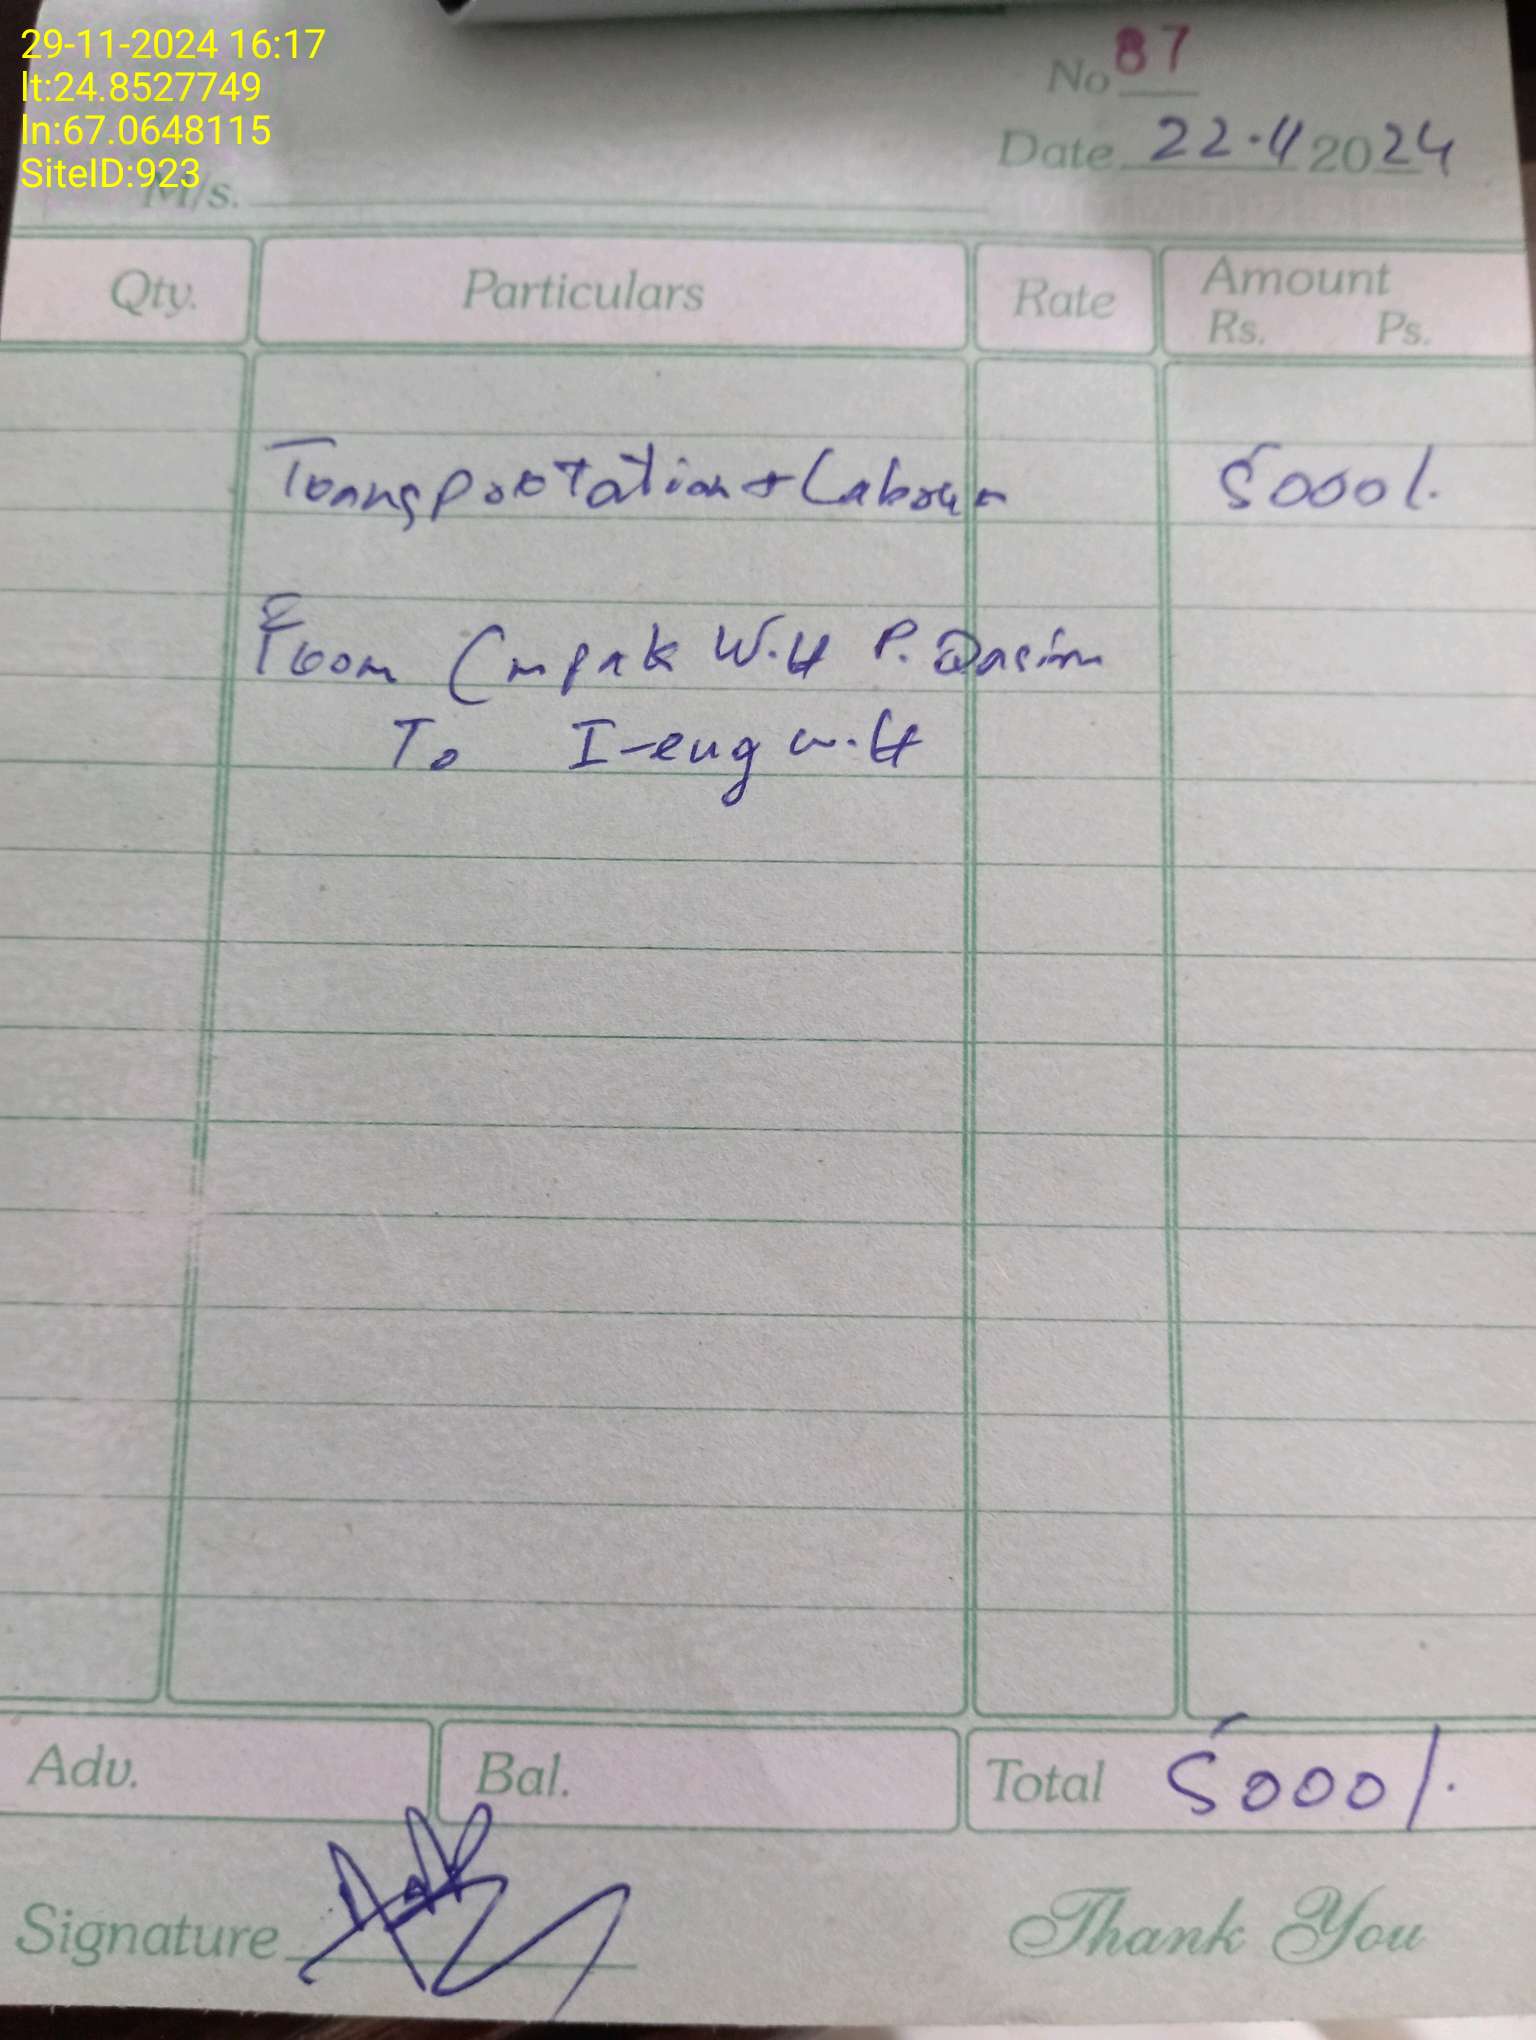 29-11-2024 16:17
lt:24.8527749
ln:67.0648115
SiteID:923
No 87
Date 22.11 2024
M/s.
Qty. Particulars Rate Amount
Rs. Ps.
Transportation + Labour 5000/.
From Cmpak W.H P. Qasim
To I-eng W.H
Adv. Bal. Total 5000/.
Signature Thank You